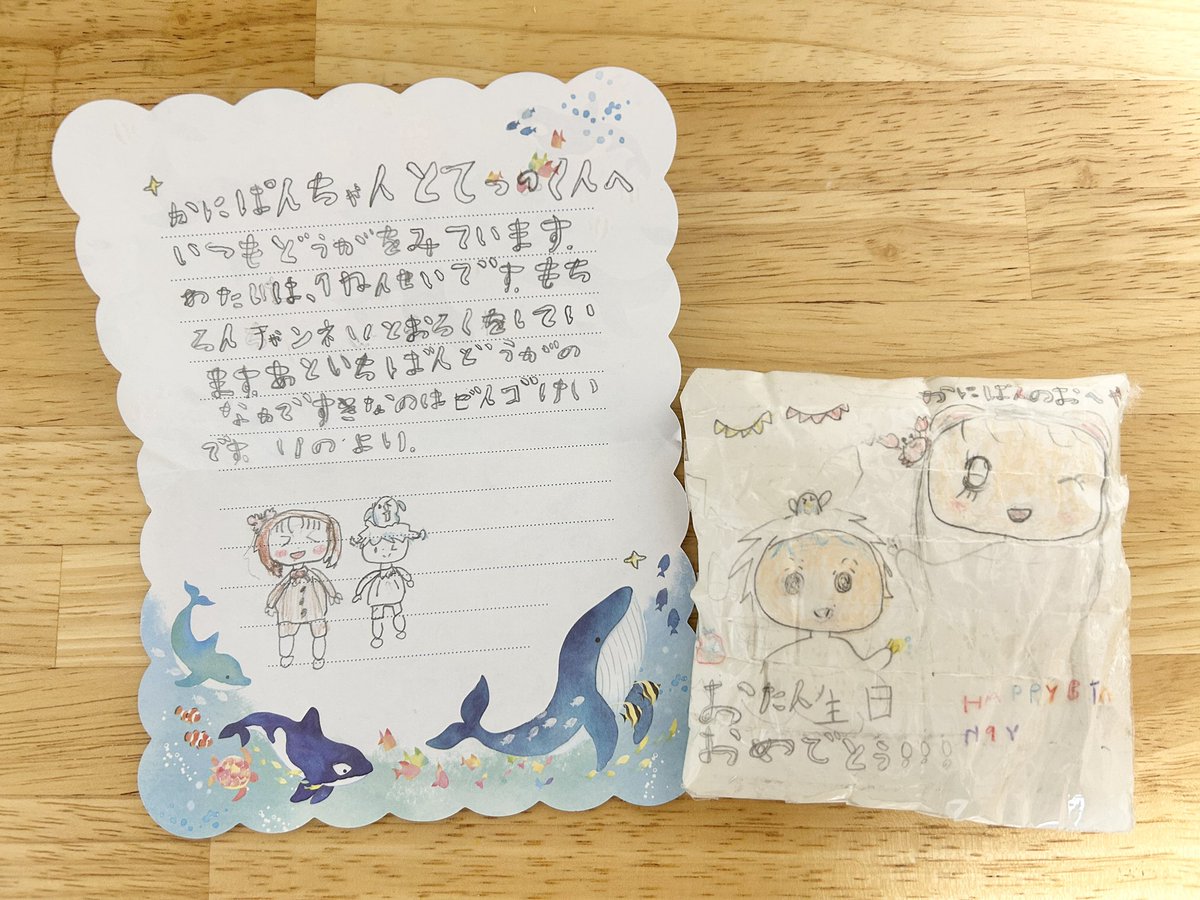 かにぱんちゃんとてっつくんへ
いつもどうがをみています.
わたしは、1ねんせいです.もち
ろんチャンネルとおろくをしてい
ます.あといちばんどうがの
なかですきなのはビンゴけい
です.りのより.
かにぱんのおへや
おたん生日
おめでとう!!!
HAPPY BTh
DAY